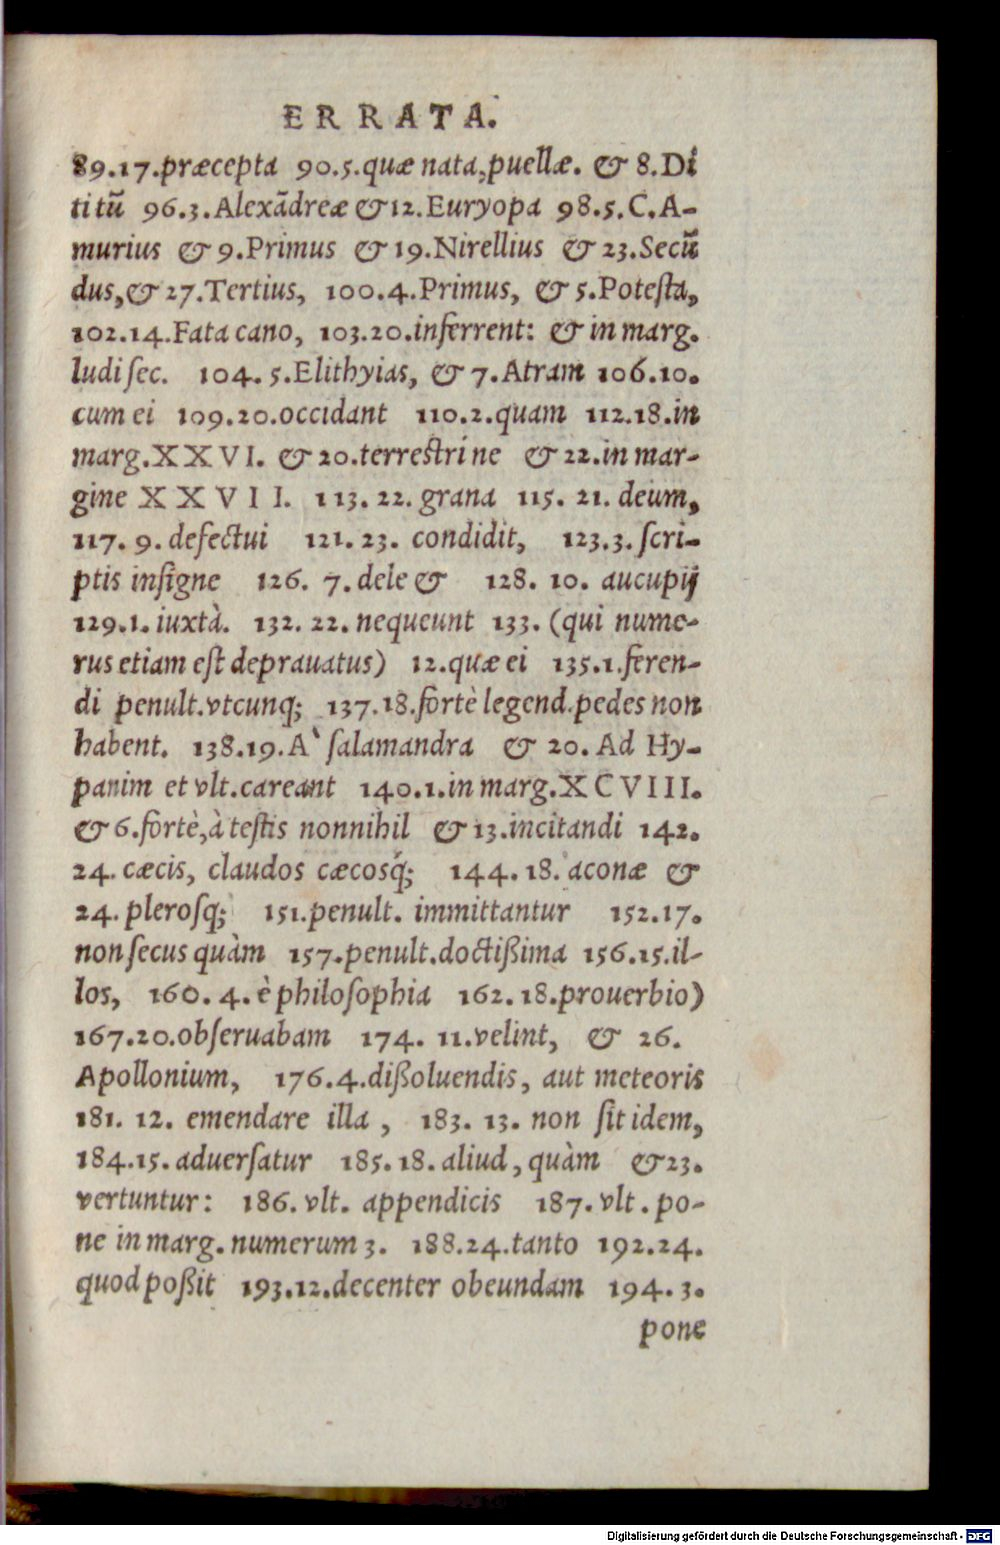 ERRATA.
89.17.præcepta 90.5.quæ nata,puellæ. & 8.Di
titū 96.3.Alexādreæ &12.Euryopa 98.5.C.A-
murius & 9.Primus & 19.Nirellius & 23.Secū
dus,& 27.Tertius, 100.4.Primus, & 5.Potesta,
102.14.Fata cano, 103.20.inferrent: & in marg.
ludi sec. 104. 5.Elithyias, & 7.Atram 106.10.
cum ei 109.20.occidant 110.2.quam 112.18.in
marg.XXVI. & 20.terrestrine & 22.in mar-
gine XXVII. 113. 22. grana 115. 21. deum,
117. 9. defectui 121. 23. condidit, 123.3. scri-
ptis insigne 126. 7. dele & 128. 10. aucupij
129.1. iuxtà. 132. 22. nequeunt 133. (qui nume-
rus etiam est deprauatus) 12.quæ ei 135.1.feren-
di penult.vtcunq; 137.18.fortè legend.pedes non
habent. 138.19.A` salamandra & 20. Ad Hy-
panim et vlt.careant 140.1.in marg.XCVIII.
& 6.fortè,à testis nonnihil & 13.incitandi 142.
24. cæcis, claudos cæcosq́; 144. 18. aconæ &
24. plerosq; 151.penult. immittantur 152.17.
non secus quàm 157.penult.doctißima 156.15.il-
los, 160. 4. è philosophia 162. 18.prouerbio)
167.20.obseruabam 174. 11.velint, & 26.
Apollonium, 176.4.dißoluendis, aut meteoris
181. 12. emendare illa , 183. 13. non sit idem,
184.15. aduersatur 185.18. aliud, quàm &23.
vertuntur: 186. vlt. appendicis 187. vlt. po-
ne in marg. numerum 3. 188.24.tanto 192.24.
quod poßit 193.12.decenter obeundam 194. 3.
pone
Digitalisierung gefördert durch die Deutsche Forschungsgemeinschaft - DFG